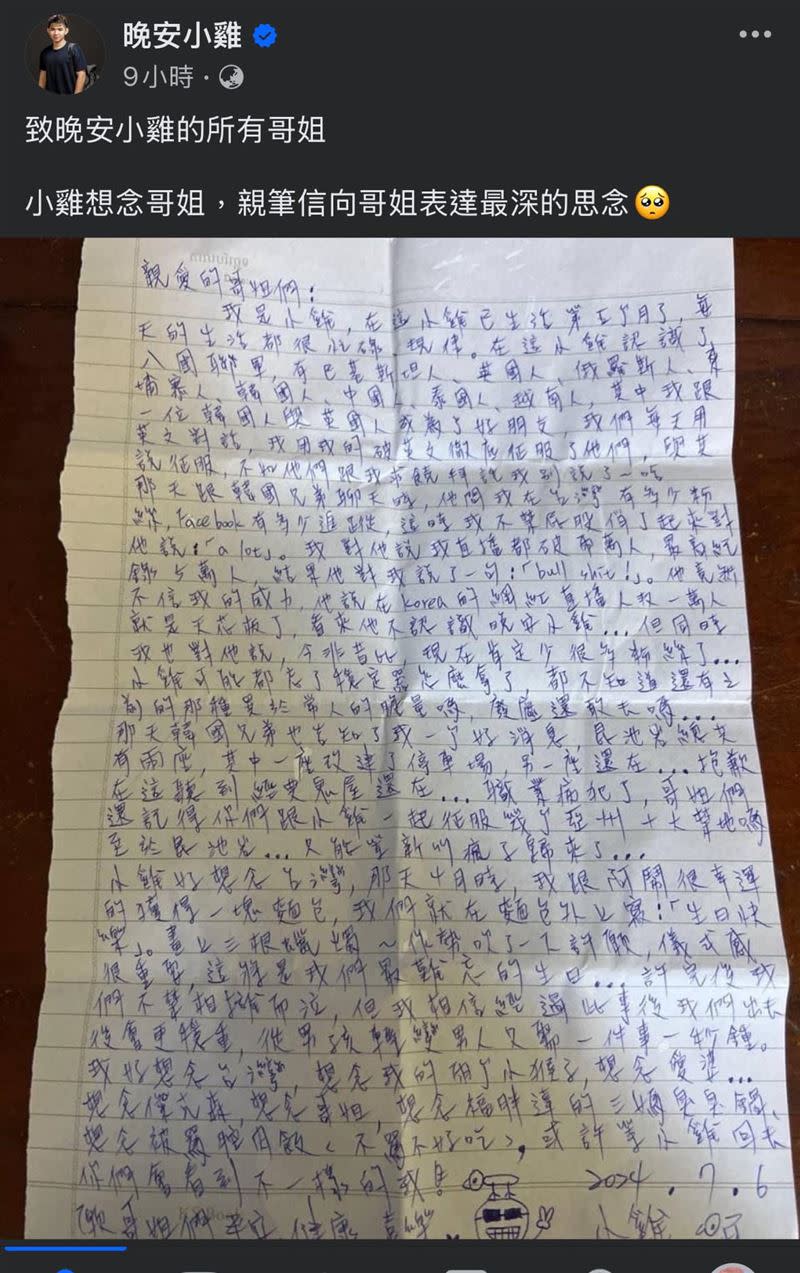 晚安小雞
9小時
致晚安小雞的所有哥姐
小雞想念哥姐，親筆信向哥姐表達最深的思念🥺
親愛的哥姐們：
我是小雞，在這小雞已生活第五個月了，每
天的生活都很忙碌、規律。在這小雞認識了
八國聯軍，有巴基斯坦人、英國人、俄羅斯人、柬
埔寨人、韓國人、中國人、泰國人、越南人，其中我跟
一位韓國人與英國人成為了好朋友，我們每天用
英文對話，我用我的破英文徹底征服了他們，與其
說征服，不如他們跟我求饒拜託我別說了～哈
那天跟韓國兄弟聊天時，他問我在台灣有多少粉
絲，Facebook有多少追蹤，這時我不禁屁股翹了起來對
他說：「a lot」。我對他說我直播都破兩萬人，最高紀
錄5萬人，結果他對我說了一句：「bull shit!」。他竟然
不信我的威力，他說在Korea的網紅直播人數一萬人
就是天花板了，看來他不認識晚安小雞...但同時
我也對他說，今非昔比，現在肯定少很多粉絲了...
小雞可能都老了穩定器怎麼拿了 都不知道還有之
前的那種異於常人的膽量嗎，廢墟還敢去嗎...
那天韓國兄弟也告知了我一個好消息，昆池岩總共
有兩座，其中一座改建了停車場，另一座還在...抱歉
在這聽到經典鬼屋還在...職業病犯了，哥姐們
還記得你們跟小雞一起征服幾個亞洲十大禁地嗎
至於昆池岩...只能重新叫瘋子歸來了...
小雞好想念台灣，那天4月時，我跟阿鬧很幸運
的獲得一塊麵包，我們就在麵包外上寫：「生日快
樂」。畫上三根蠟燭～作勢吹了一下許願，儀式感
很重要，這將是我們最難忘的生日...許完後我
們不禁相擁而泣，但我相信經過此事後我們出去
後會更穩重，從男孩轉變男人只需一件事一秒鐘。
我好想念台灣，想念我的兩個小猴子，想念愛婆...
想念傑克森，想念哥姐，想念福胖達的三媽臭臭鍋、
想念被罵雞腿飯<不罵不好吃>，或許等小雞回去
你們會看到不一樣的我!! 2024.7.6
哥姐們平安、健康、喜樂 小雞